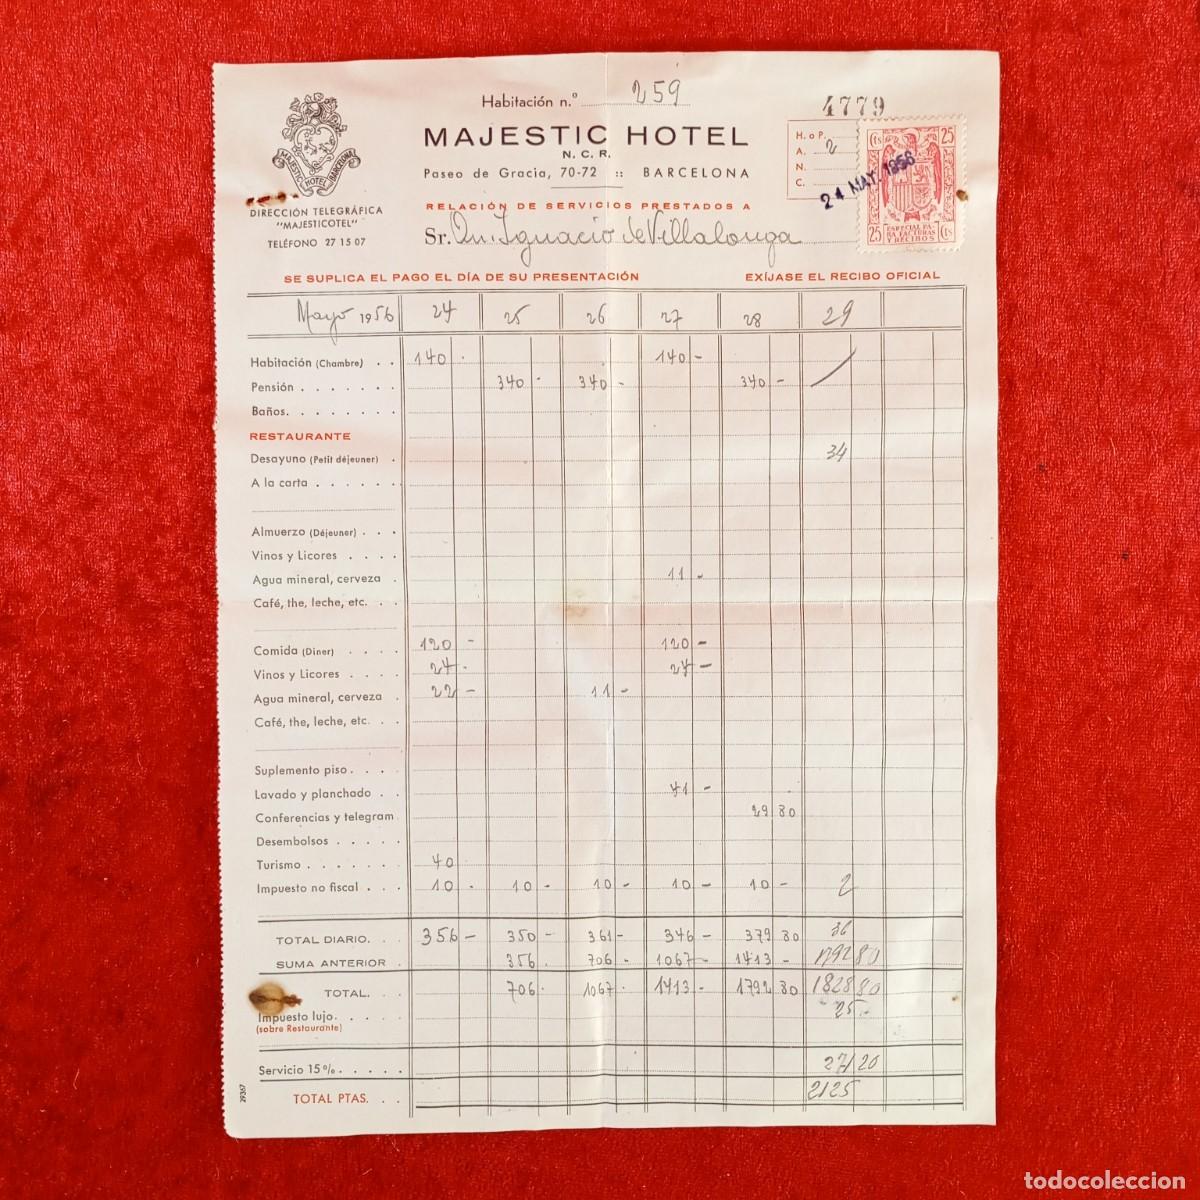 Habitación n.º 259
4779
MAJESTIC HOTEL
N. C. R.
Paseo de Gracia, 70-72 :: BARCELONA
H. o P.
A. 2
N.
C.
Cts 25
24 MAY. 1956
ESPECIAL PA-
RA FACTURAS
Y RECIBOS
25 Cts
MAJESTIC HOTEL BARCELONA
DIRECCIÓN TELEGRÁFICA
"MAJESTICOTEL"
TELÉFONO 27 15 07
RELACIÓN DE SERVICIOS PRESTADOS A
Sr. Dn. Ignacio de Villalonga
SE SUPLICA EL PAGO EL DÍA DE SU PRESENTACIÓN EXÍJASE EL RECIBO OFICIAL
Mayo 1956 24 25 26 27 28 29
Habitación (Chambre) . . 140 . 140 -
Pensión . . . . . . . 340 . 340 - 340 -
Baños. . . . . . . .
RESTAURANTE
Desayuno (Petit déjeuner) . 34
A la carta . . . . . .
Almuerzo (Déjeuner) . . .
Vinos y Licores . . . .
Agua mineral, cerveza . 11 -
Café, the, leche, etc. . .
Comida (Diner) . . . . 120 - 120 -
Vinos y Licores . . . . 24 - 24 -
Agua mineral, cerveza . 22 - 11 -
Café, the, leche, etc. . .
Suplemento piso. . . .
Lavado y planchado . . 41 -
Conferencias y telegram 29 80
Desembolsos . . . . .
Turismo . . . . . . . 40
Impuesto no fiscal . . . 10 . 10 - 10 - 10 - 10 - 2
TOTAL DIARIO. . . 356 - 350 - 361 - 346 - 379 80 36
SUMA ANTERIOR . 356 . 706 - 1067 - 1413 - 1792 80
TOTAL. . . 706 . 1067 . 1413 - 1792 80 1828 80
Impuesto lujo. . . . . 25.-
(sobre Restaurante)
Servicio 15 %. . . . . 271 20
TOTAL PTAS. . . 2125
29367
todocoleccion